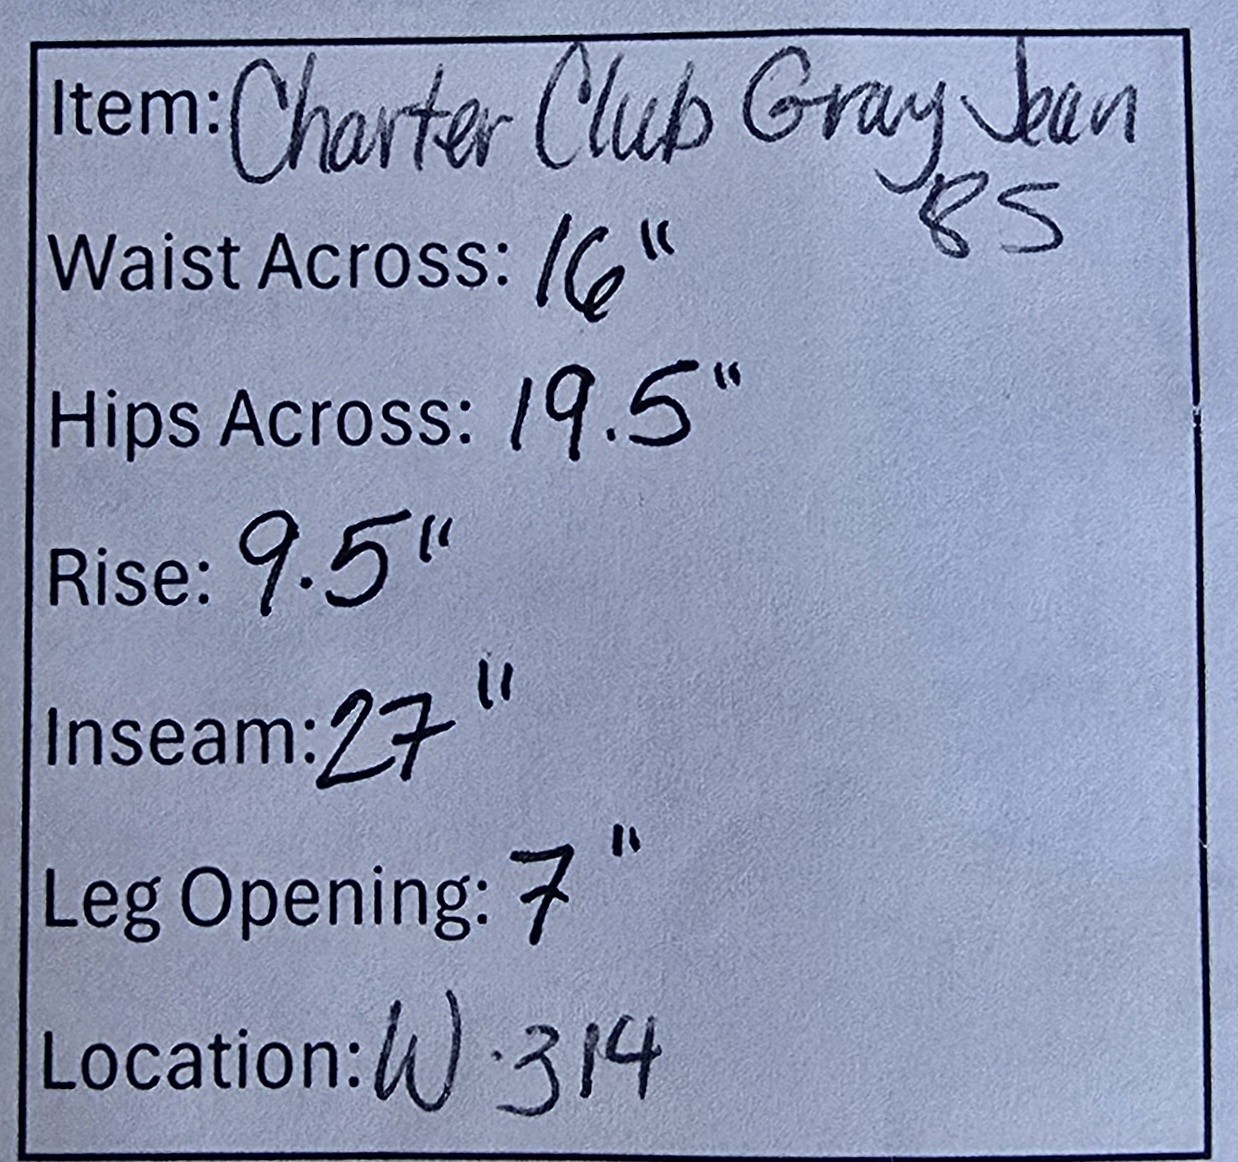 Item: Charter Club Gray Jean
8S
Waist Across: 16"
Hips Across: 19.5"
Rise: 9.5"
Inseam: 27"
Leg Opening: 7"
Location: W·314